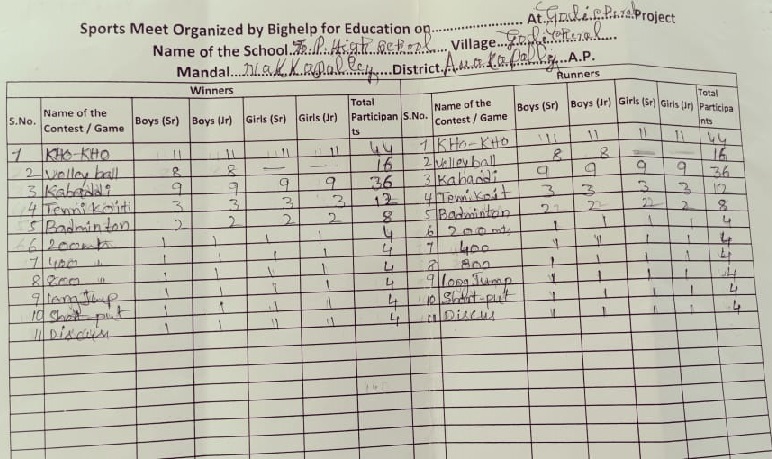 Sports Meet Organized by Bighelp for Education on.......................... At. Project
Name of the School... High School Village...
Mandal... District. Anakapally A.P.
Winners Runners
S.No. Name of the Contest / Game Boys (Sr) Boys (Jr) Girls (Sr) Girls (Jr) Total Participants S.No. Name of the Contest / Game Boys (Sr) Boys (Jr) Girls (Sr) Girls (Jr) Total Participants
1 KHO-KHO 11 11 11 11 44 1 KHO-KHO 11 11 11 11 44
2 Volley ball 8 8 — — 16 2 Volleyball 8 8 — — 16
3 Kabaddi 9 9 9 9 36 3 Kabaddi 9 9 9 9 36
4 3 3 3 3 12 4 Tennikoit 3 3 3 3 12
5 Badminton 2 2 2 2 8 5 Badminton 2 2 2 2 8
6 200mts 1 1 1 1 4 6 200 mts 1 1 1 1 4
7 400 " 1 1 1 1 4 7 400 1 1 1 1 4
8 800 " 1 1 1 1 4 8 800 1 1 1 1 4
9 long Jump 1 1 1 1 4 9 long Jump 1 1 1 1 4
10 Shot-put 1 1 1 1 4 10 Shot-put 1 1 1 1 4
11 Discus 1 1 11 11 4 11 Discus 1 1 1 1 4